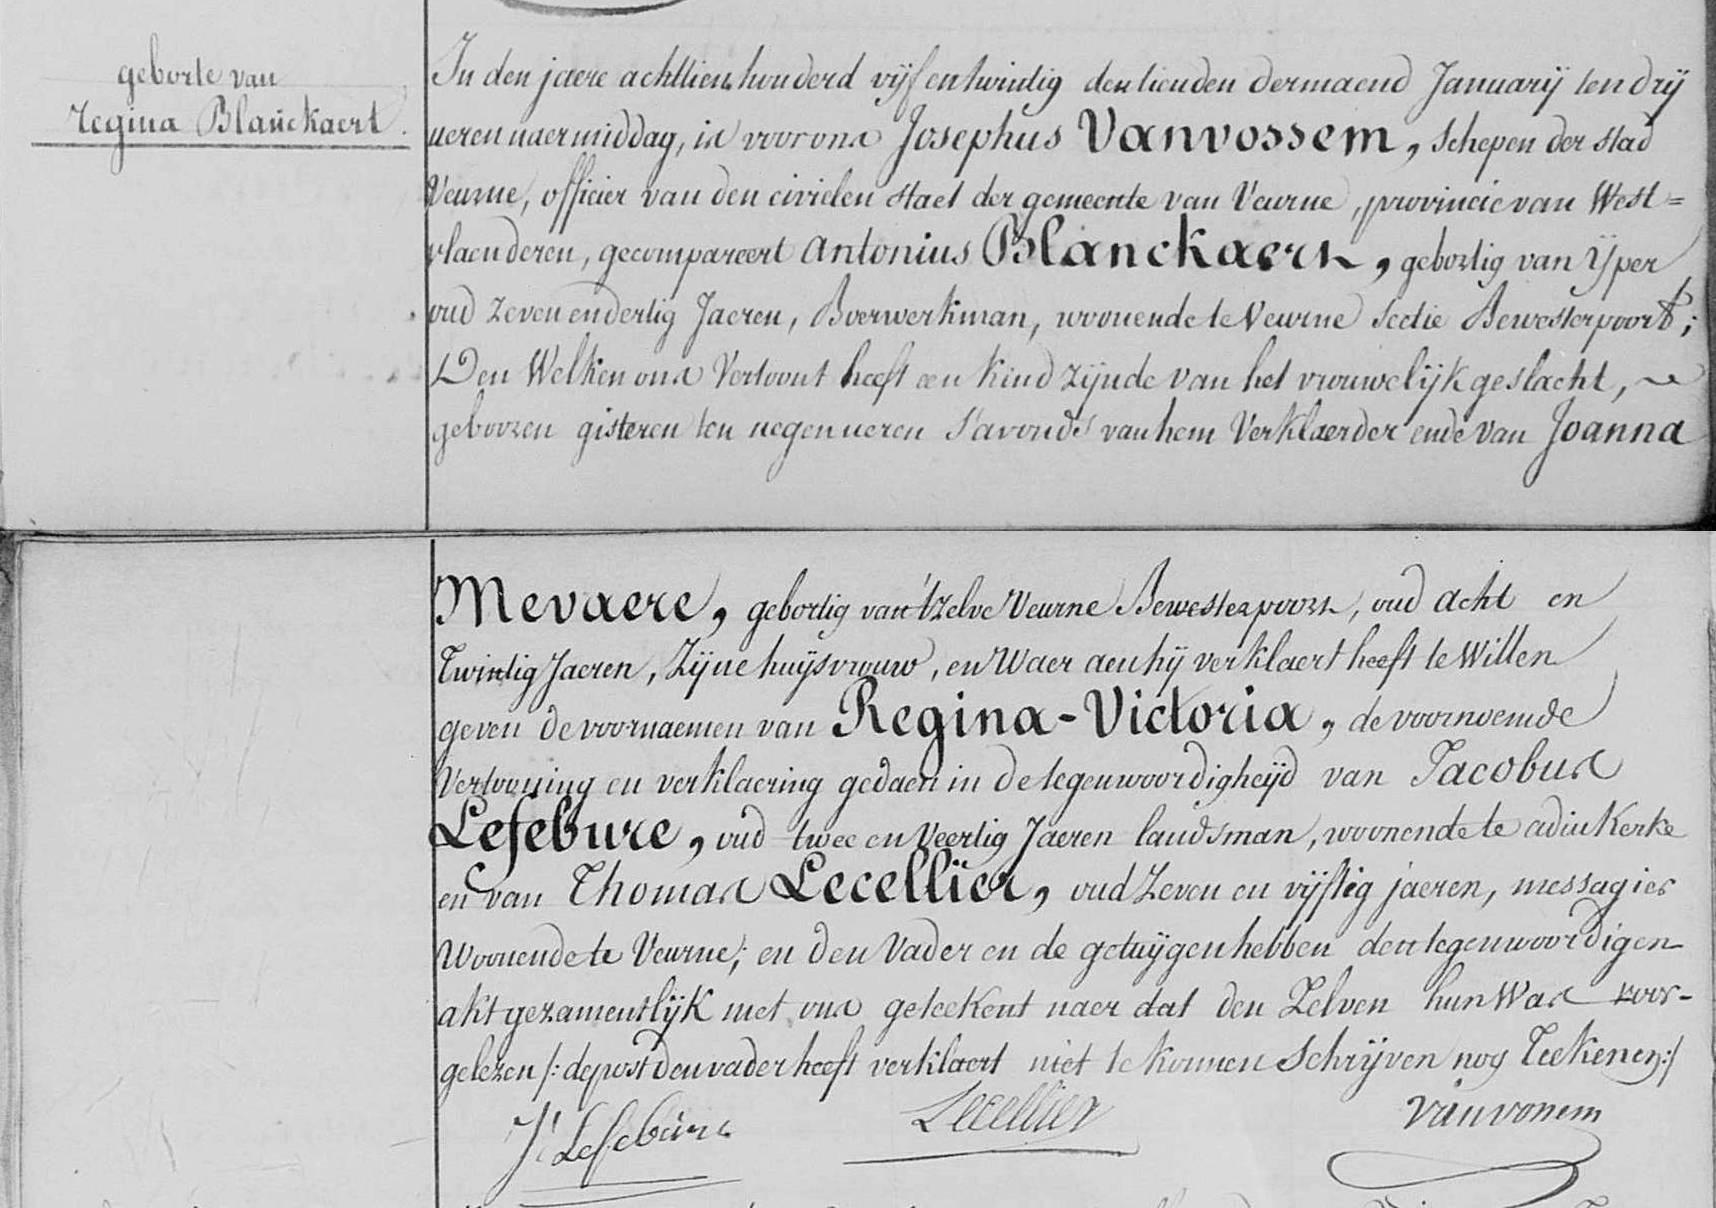 geborte van
Regina Blanckaert.
In den jaere achttien houderd vijf en twintig den tienden dermaend Januarij ten drij
ueren naermiddag, is voor ons Josephus Vanvossem, schepen der stad
Veurne, officier van den civielen staet der gemeente van Veurne, provincie van West=
vlaenderen, gecompareert Antonius Blanckaert, gebortig van Yper
oud zeven en dertig Jaeren, Boerwerkman, woonende te Veurne Sectie Bewesterpoort;
Den Welken ons Vertoont heeft een kind zijnde van het vrouwelijk geslacht,
geboozen gisteren ten negen ueren s'avonds van hem Verklaerder ende van Joanna
Mevaere, gebortig van 't zelve Veurne Bewesterpoort, oud acht en
Twintig Jaeren, Zijne huijsvrouw, en Waer aen hij verklaert heeft te Willen
geven de voornaemen van Regina-Victoria, de voornoemde
Vertooning en verklaering gedaen in de tegenwoordigheijd van Jacobus
Lefebure, oud twee en Veertig Jaeren landsman, woonende te adinkerke
en van Thomas Lecellier, oud Zeven en vijftig jaeren, messagier
Woonende te Veurne; en den Vader en de getuijgen hebben den tegenwoordigen
akt gezamentlijk met ons geteekent naer dat den Zelven hun Was voor-
gelezen /: depost den vader heeft verklaert niet te konnen Schrijven nog Teekenen:/
J: Lefebure Lecellier Vanvossem